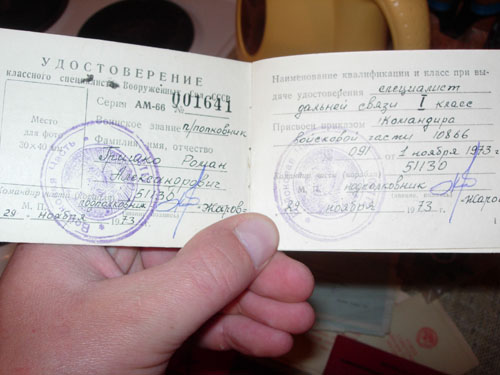 УДОСТОВЕРЕНИЕ
классного специалиста Вооруженных Сил СССР
Серия АМ-66 001641
Воинское звание п/полковник
Фамилия, имя, отчество
Роман
Александрович
51130
Место
для фото
20×40 мм
подполковник
М. П.
29 ноября 1973 г.
Жаров
Наименование квалификации и класс при выдаче удостоверения специалист
дальней связи I класс
Присвоен приказом Командира
войсковой части 10866
091 1 ноября 1973 г.
51130
М. П. подполковник
29 ноября 1973 г.
Жаров